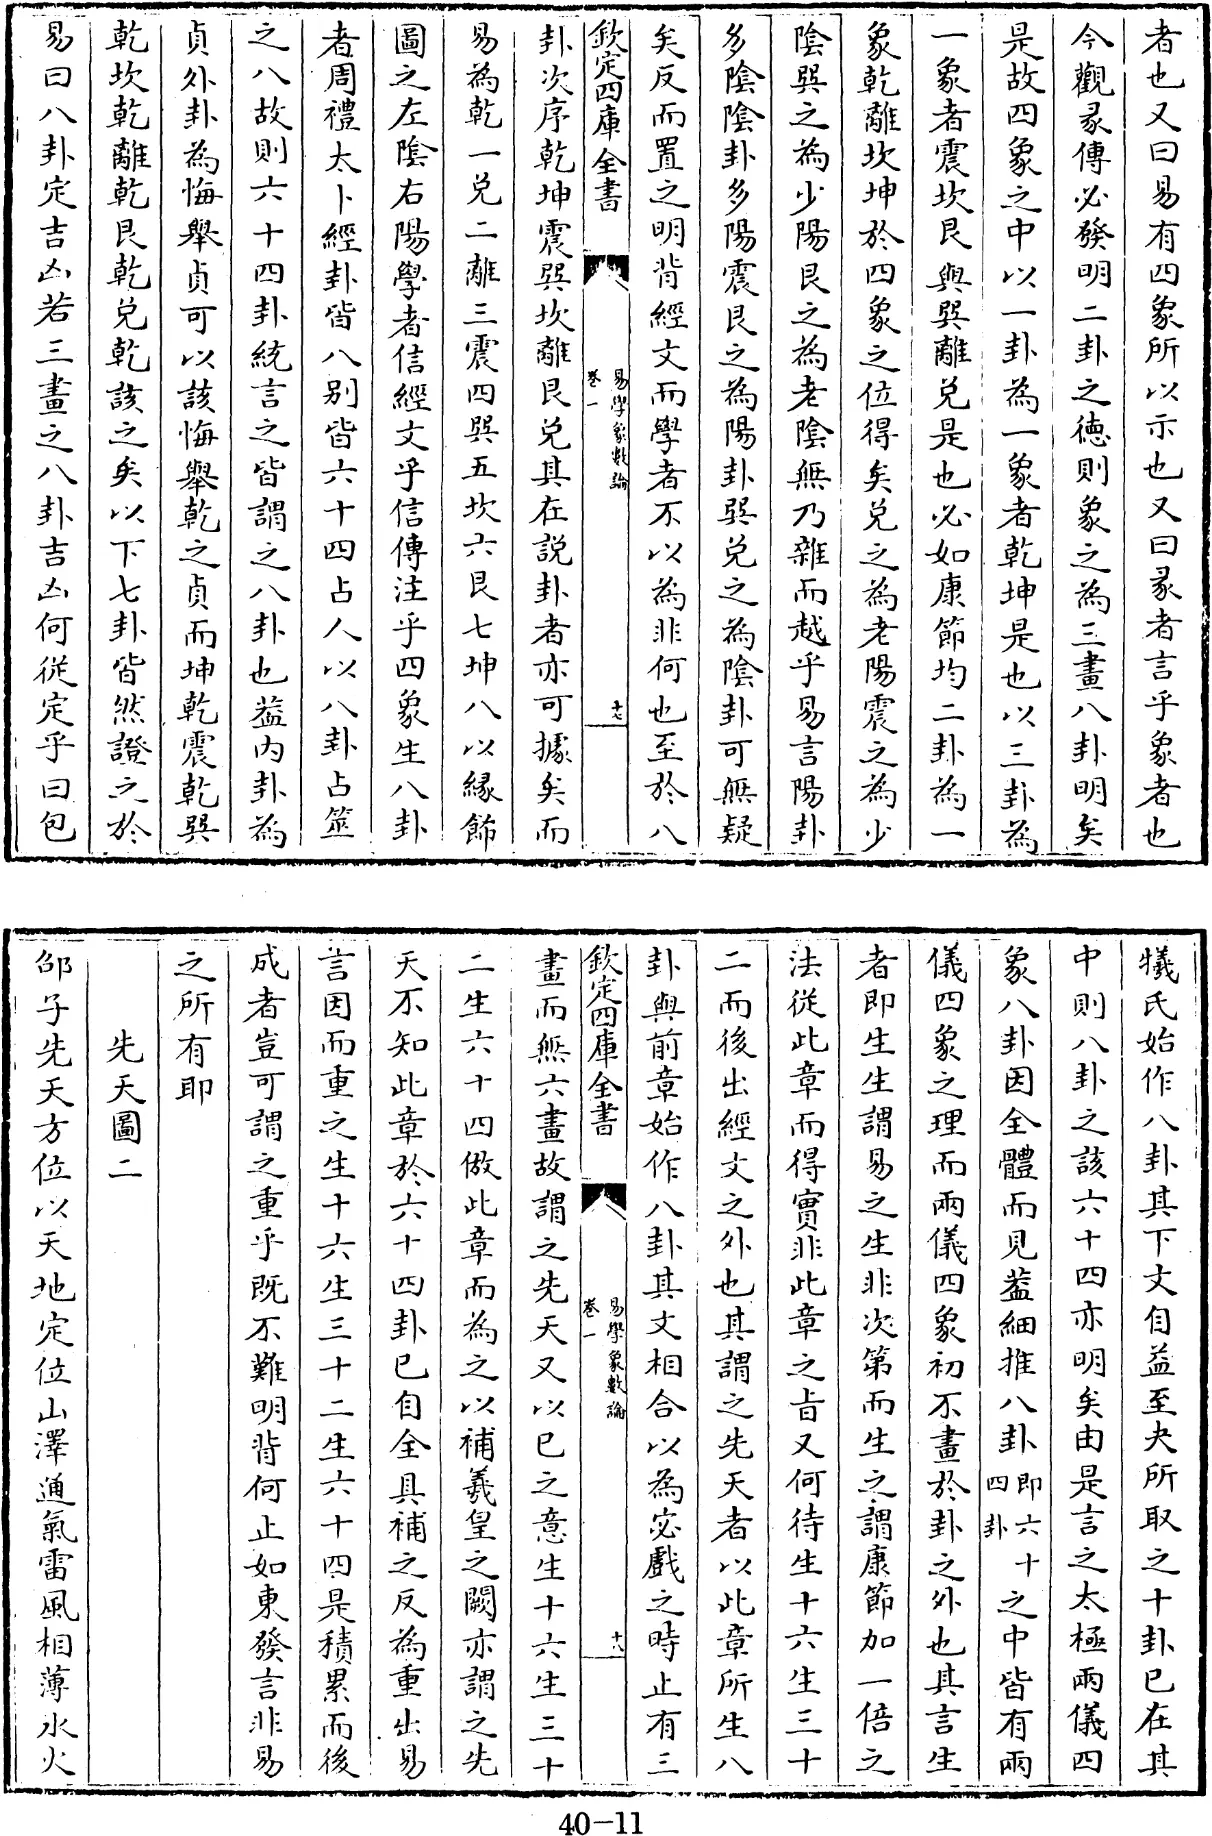 者也又曰易有四象所以示也又曰彖者言乎象者也
今觀彖傳必發明二卦之德則象之為三畫八卦明矣
是故四象之中以一卦為一象者乾坤是也以三卦為
一象者震坎艮與巽離兌是也必如康節均二卦為一
象乾離坎坤於四象之位得矣兌之為老陽震之為少
陰巽之為少陽艮之為老陰無乃雜而越乎易言陽卦
多陰陰卦多陽震艮之為陽卦巽兌之為陰卦可無疑
矣反而置之明背經文而學者不以為非何也至於八
欽定四庫全書
易學象數論
卷一
十七
卦次序乾坤震巽坎離艮兌其在說卦者亦可據矣而
易為乾一兌二離三震四巽五坎六艮七坤八以緣飾
圖之左陰右陽學者信經文乎信傳注乎四象生八卦
者周禮太卜經卦皆八別皆六十四占人以八卦占筮
之八故則六十四卦統言之皆謂之八卦也葢內卦為
貞外卦為悔舉貞可以該悔舉乾之貞而坤乾震乾巽
乾坎乾離乾艮乾兌乾該之矣以下七卦皆然證之於
易曰八卦定吉凶若三畫之八卦吉凶何從定乎曰包
犧氏始作八卦其下文自益至夬所取之十卦已在其
中則八卦之該六十四亦明矣由是言之太極兩儀四
象八卦因全體而見葢細推八卦即六十四卦之中皆有兩
儀四象之理而兩儀四象初不畫於卦之外也其言生
者即生生謂易之生非次第而生之謂康節加一倍之
法從此章而得實非此章之旨又何待生十六生三十
二而後出經文之外也其謂之先天者以此章所生八
卦與前章始作八卦其文相合以為宓戲之時止有三
欽定四庫全書
易學象數論
卷一
十八
畫而無六畫故謂之先天又以已之意生十六生三十
二生六十四倣此章而為之以補羲皇之闕亦謂之先
天不知此章於六十四卦已自全具補之反為重出易
言因而重之生十六生三十二生六十四是積累而後
成者豈可謂之重乎既不難明背何止如東發言非易
之所有耶
先天圖二
邵子先天方位以天地定位山澤通氣雷風相薄水火
40-11